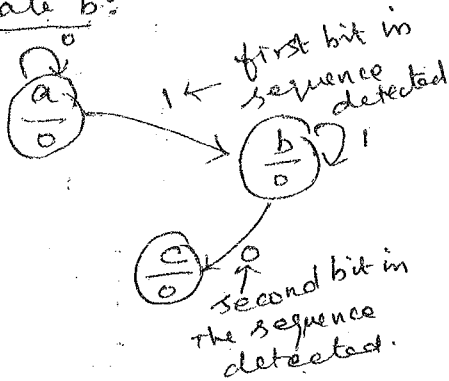 ate b:
0
a
0
1 ← first bit in
sequence
detected
b
0
1
c
0
0
second bit in
the sequence
detected.